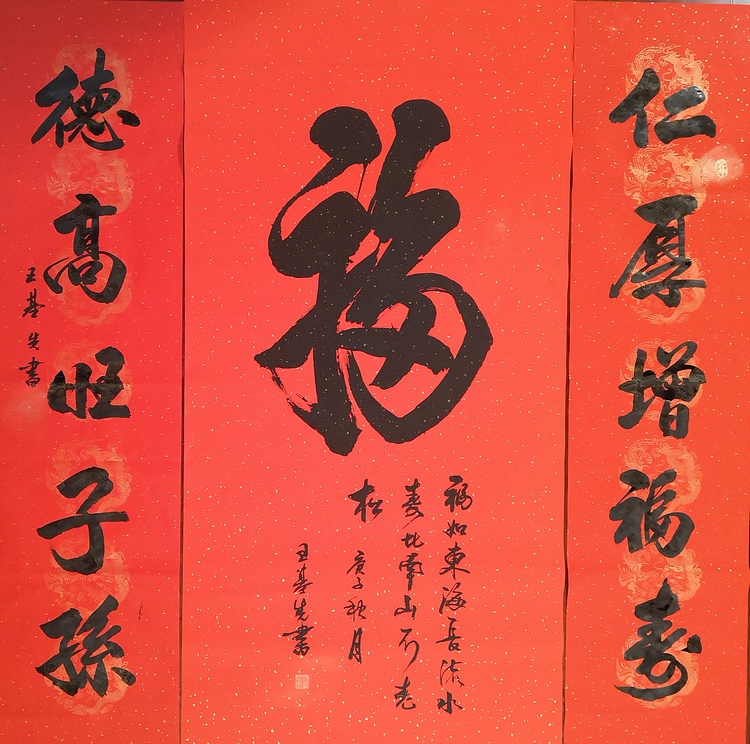 仁厚增福寿
福
福如東海長流水
寿比南山不老
松 庚子秋月
王基先書
德高旺子孫
王基先書